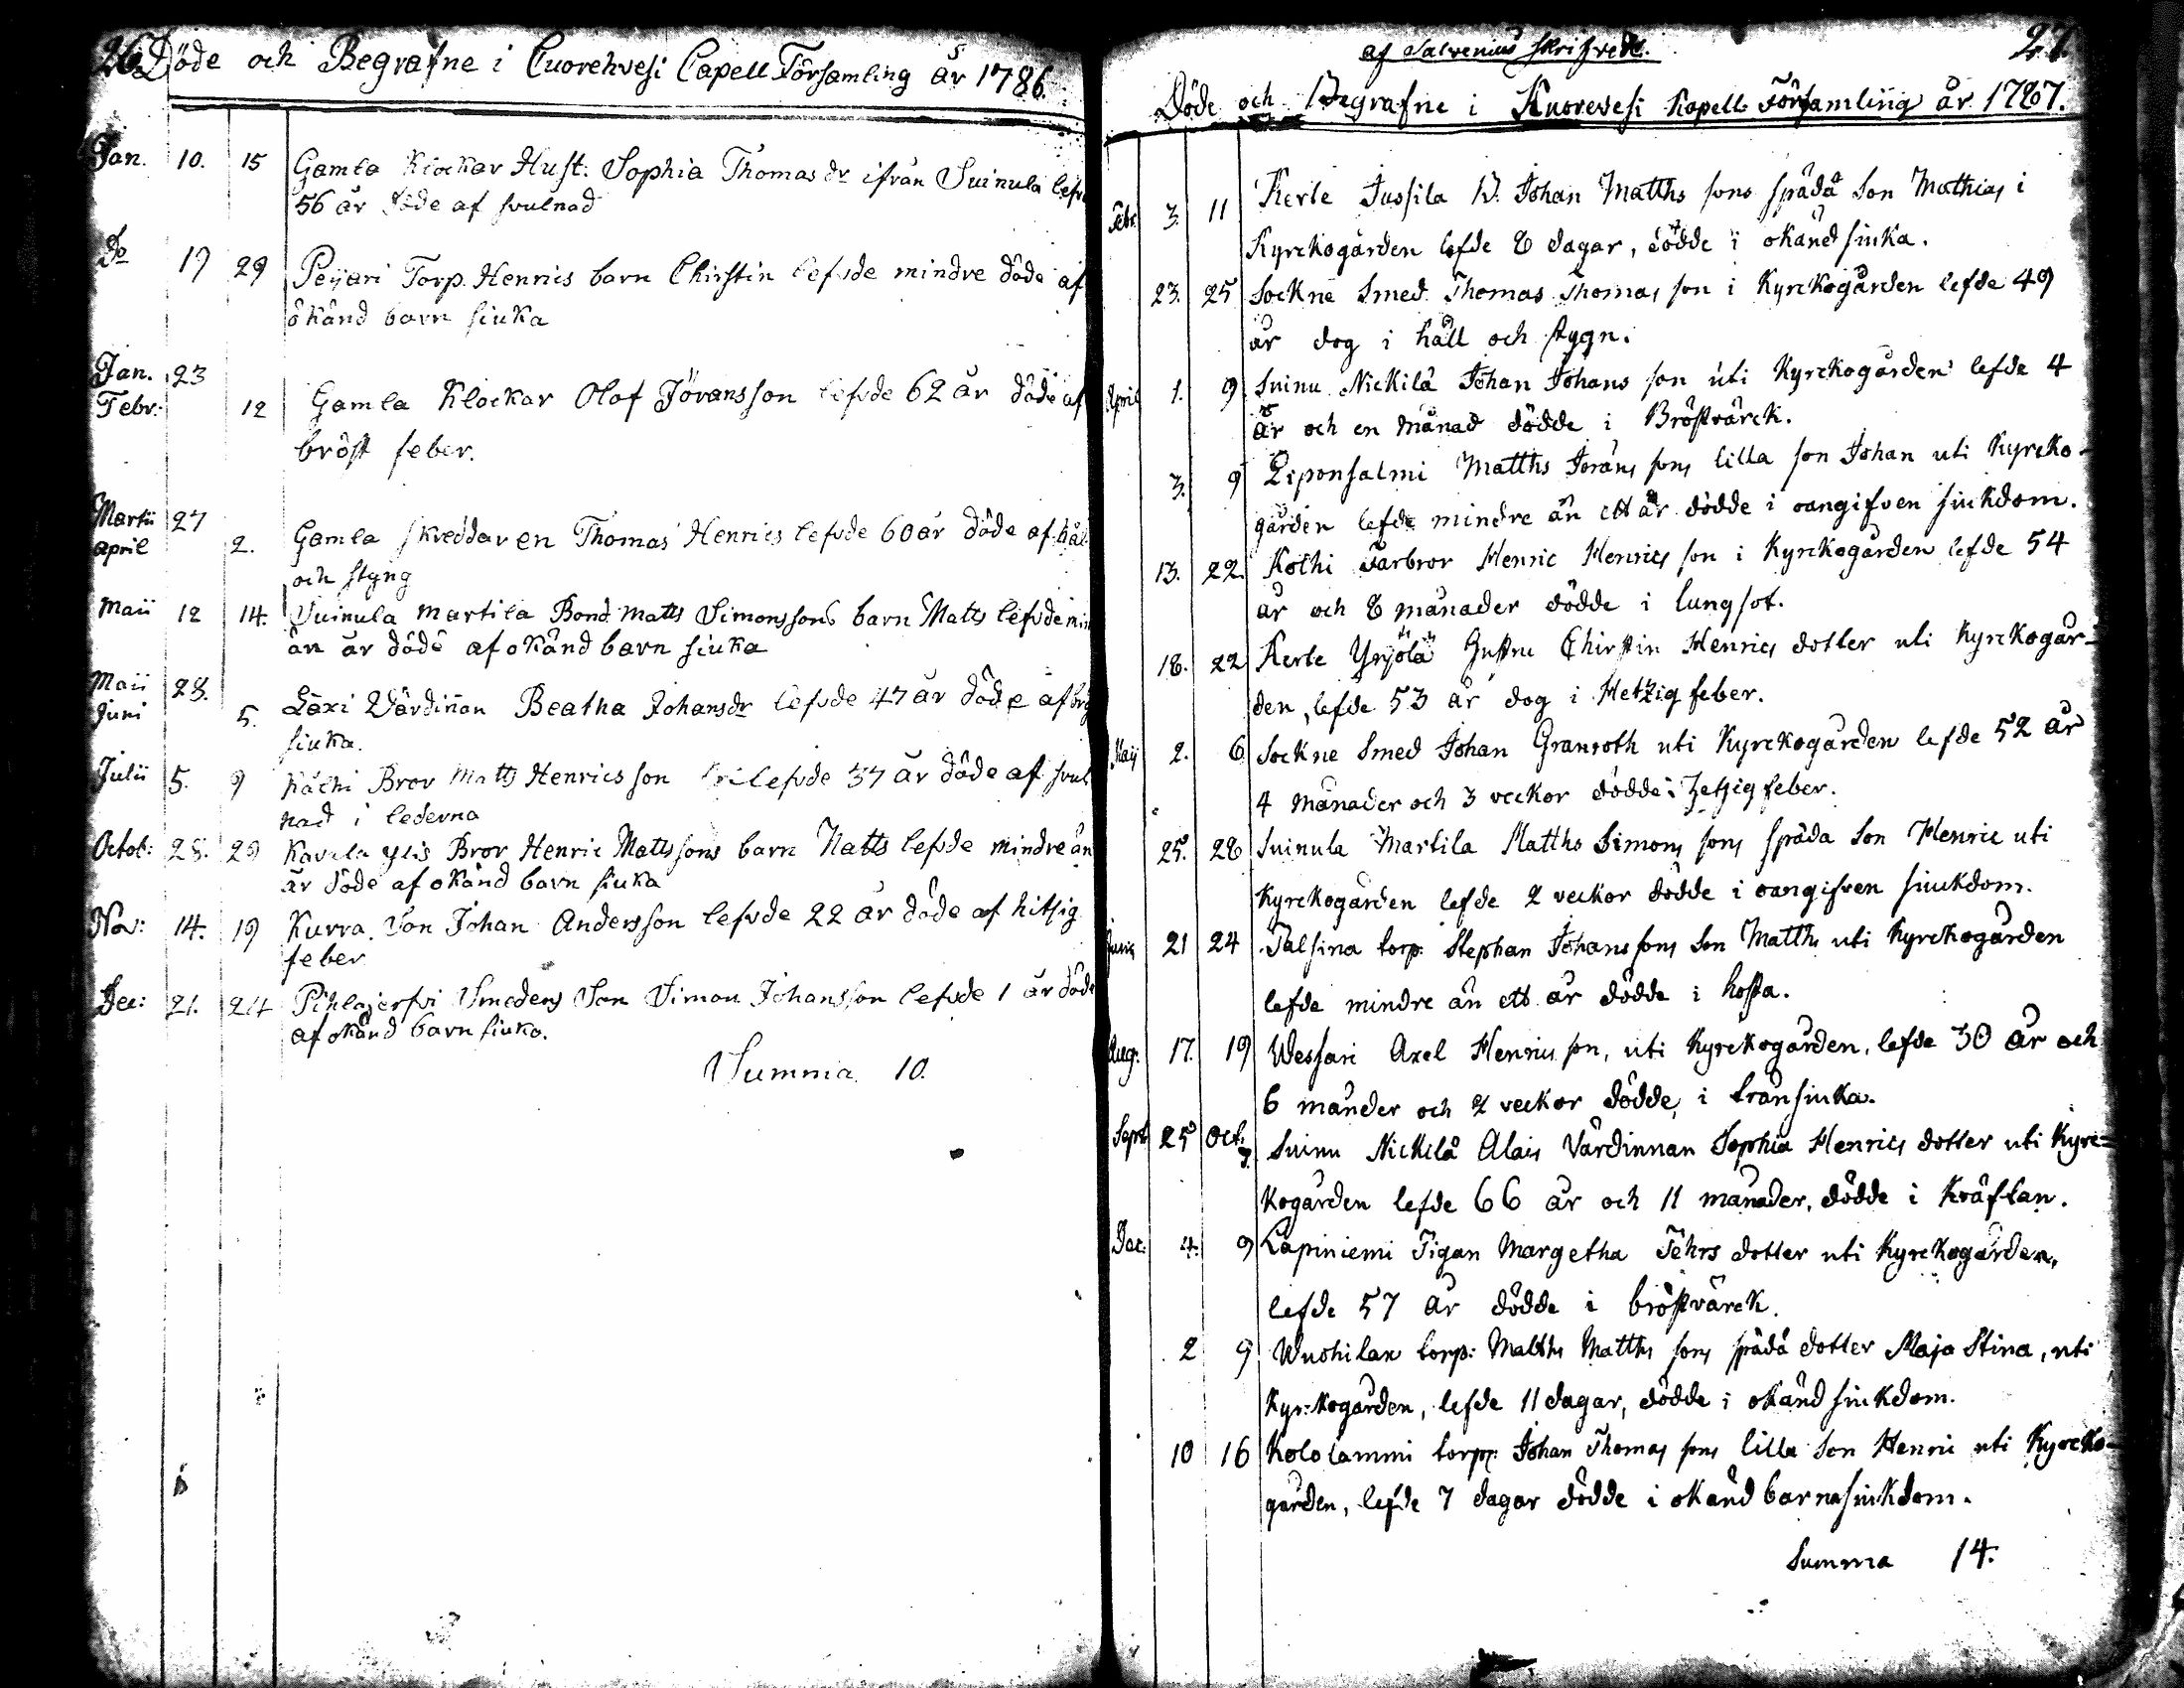 26. Döde och Begrafne i Cuorehvesi Capell Församling år 1786.
Jan. 10. 15 Gamla Klockar Hust: Sophia Thomas dr ifrån Suinula lefv
56 år döde af svulnad
Do 17 29 Peijari Torp. Henrics barn Chirstin lefvde mindre döde af
okänd barn siuka
Jan. 23
Febr: 12 Gamla Klockar Olof Jöransson lefvde 62 år döde af
bröst feber.
Martii 27
april 2. Gamla skreddaren Thomas Henrics lefvde 60 år döde af hål
och styng
Maii 12 14. Suinula Martila Bond. Matts Simonssons barn Matts lefvde min
än år döde af okänd barn siuka
Maii 28.
Juni 5. Läxi Värdinan Beatha Johansdr lefvde 47 år döde af brö
siuka.
Julii 5. 9 Kächi Bror Matts Henricsson lefvde 37 år döde af svul
nad i lederna
Octob: 28. 29 Kavala Ylis Bror Henric Mattssons barn Matts lefvde mindre än
år döde af okänd barn siuka
Nov: 14. 19 Kurra Son Johan Andersson lefvde 22 år döde af hitsig
feber
Dec: 21. 24 Pihlajerfvi Smedens Son Simon Johansson lefvde 1 år döde
af okänd barn siuka.
Summa 10.
af Salvenius skrifvede. 27.
Döde och Begrafne i Kuorevesi Kapells Församling år 1787.
Febr. 3. 11 Kerte Jussila B. Johan Matths sons späda Son Mathias i
Kyrckogården lefde 8 dagar, dödde i okänd siuka.
23. 25 Sockne Smed Thomas Thomas son i Kyrckogården lefde 49
år dog i håll och stygn.
April 1. 9 Suinu Nickilä Johan Johans son uti Kyrckogården lefde 4
år och en månad dödde i Bröstvärck.
3. 9 Leponsalmi Matths Jörans sons lilla son Johan uti Kyrcko-
gården lefde mindre än ett år dödde i oangifven siukdom.
13. 22. Kothi Farbror Henric Henrics son i Kyrckogården lefde 54
år och 8 månader dödde i lungsot.
18. 22 Kerte Yrjölä Hustru Chirstin Henrics dotter uti Kyrckogår-
den, lefde 53 år dog i Hetzig feber.
Maij 2. 6 Sockne Smed Johan Granroth uti Kyrckogården lefde 52 år
4 månader och 3 veckor dödde i hetsig feber.
25. 28 Suinula Martila Matths Simons sons späda Son Henric uti
Kyrckogården lefde 2 veckor dödde i oangifven siuckdom.
Junii 21 24 Talsina torp: Stephan Johans sons Son Matths uti Kyrckogården
lefde mindre än ett år dödde i hosta.
Aug: 17. 19 Wessari Axel Henrics son, uti Kyrckogården, lefde 30 år och
6 månder och 2 veckor dödde i transiuka.
Sept: 25 Oct: 7. Suinu Nickilä Alais Värdinnan Sophia Henrics dotter uti Kyrc-
kogården lefde 66 år och 11 månader, dödde i Kräftan.
Dec: 4. 9 Lapiniemi Pigan Margetha Pehrs dotter uti Kyrckogården,
lefde 57 år dödde i bröstvärck.
2 9 Wuohilax torp: Matths Matths sons späda dotter Maja Stina, uti
Kyrckogården, lefde 11 dagar, dödde i okänd siukdom.
10 16 Kololammi torp: Johan Thomas sons lilla Son Henric uti Kyrcko-
gården, lefde 7 dagar dödde i okänd barnasiukdom.
Summa 14.